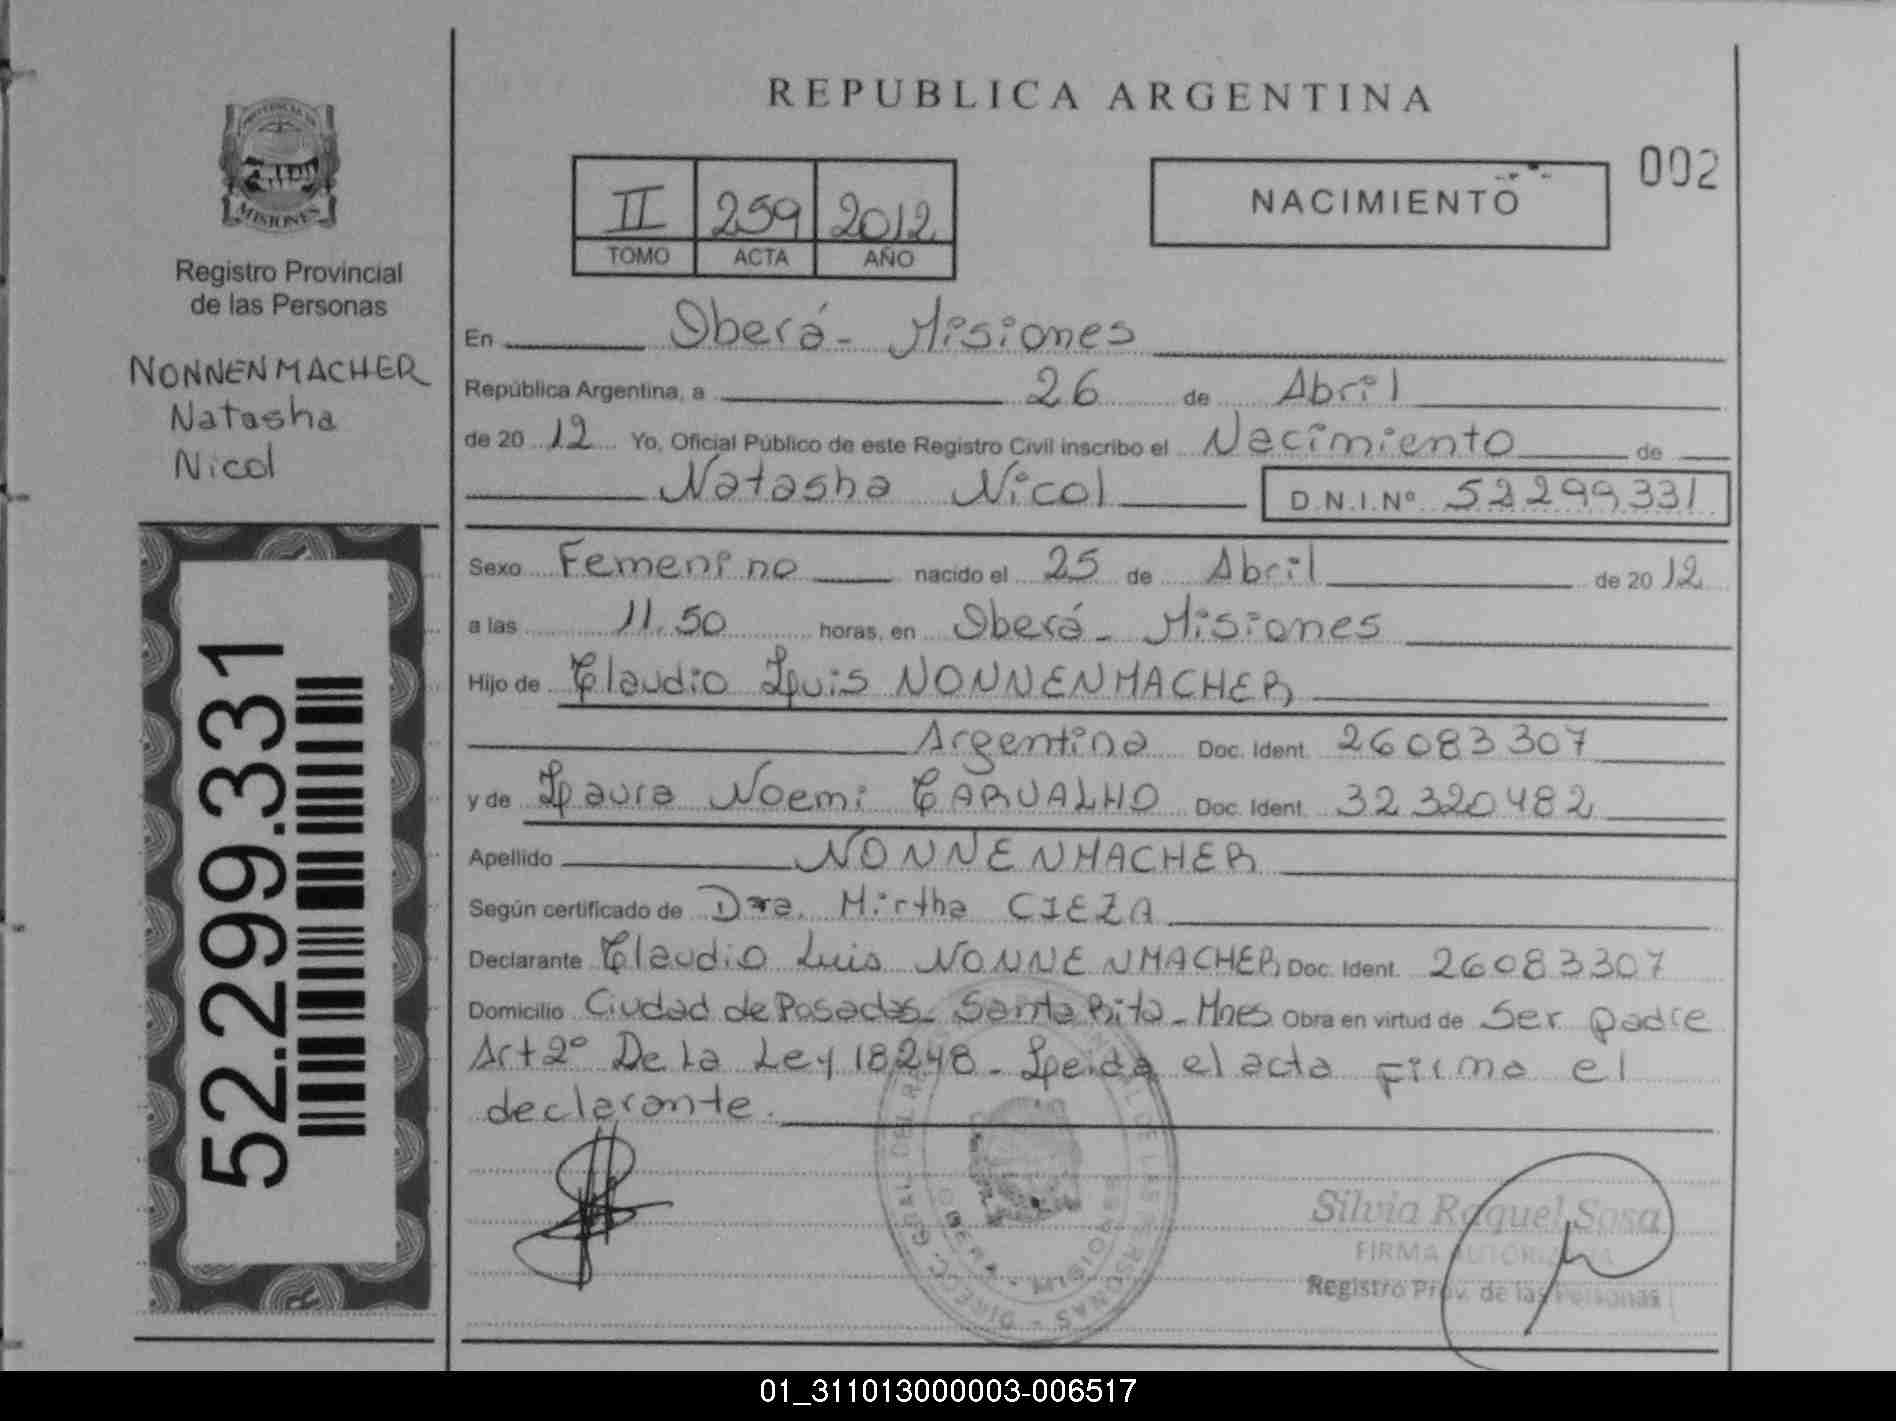 REPUBLICA ARGENTINA
002
II 259 2012
TOMO ACTA AÑO
NACIMIENTO
MISIONES
Registro Provincial
de las Personas
NONNENMACHER
Natasha
Nicol
52.299.331
En Oberá - Misiones
República Argentina, a 26 de Abril
de 20 12 Yo, Oficial Público de este Registro Civil inscribo el Nacimiento de
Natasha Nicol D.N.I.Nº 52299331
Sexo Femenino nacido el 25 de Abril de 20 12
a las 11.50 horas, en Oberá - Misiones
Hijo de Claudio Luis NONNENMACHER
Argentina Doc. Ident. 26083307
y de Laura Noemi CARVALHO Doc. Ident. 32320482
Apellido NONNENMACHER
Según certificado de Dra. Mirtha CIEZA
Declarante Claudio Luis NONNENMACHER Doc. Ident. 26083307
Domicilio Ciudad de Posadas - Santa Rita - Mnes Obra en virtud de Ser padre
Art 2º De La Ley 18248 - Leida el acta firma el
declarante.
Silvia Raquel Sosa
FIRMA AUTORIZADA
Registro Prov. de las Personas
01_311013000003-006517